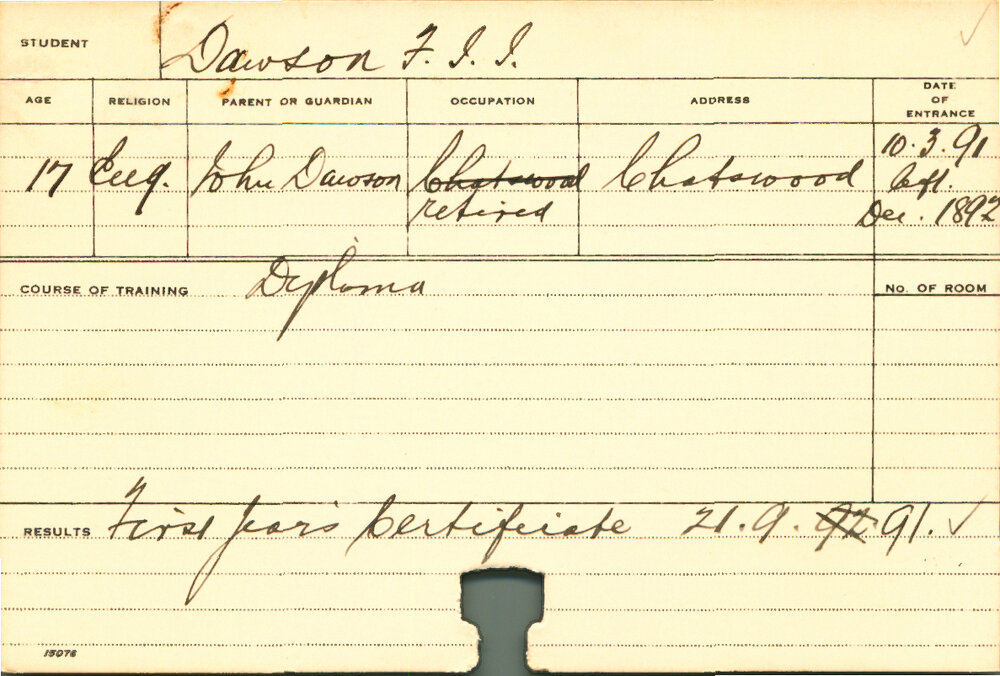 STUDENT Dawson F. I. I.
AGE RELIGION PARENT OR GUARDIAN OCCUPATION ADDRESS DATE OF ENTRANCE
17 Eng. John Dawson Chatswood Chatswood 10.3.91
retired Left.
Dec. 1892
COURSE OF TRAINING Diploma
NO. OF ROOM
RESULTS First Year's Certificiate 21.9.92.91. ✓
15076